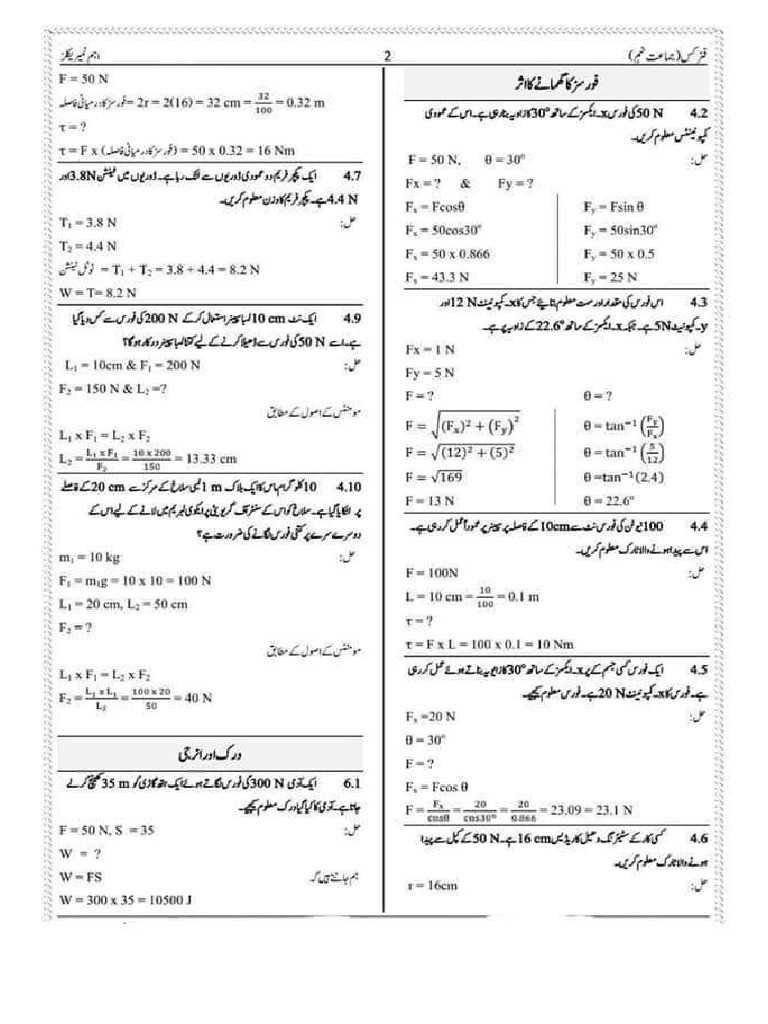 فزکس (جماعت نہم)
2
اہم نمیریکلز
فورسز کا گھمانے کا اثر
4.2 50 N کی فورس x۔ایکسز کے ساتھ 30° کا زاویہ بنا رہی ہے۔ اس کے عمودی
کمپونینٹس معلوم کریں۔
حل:
F = 50 N, θ = 30°
Fx = ? & Fy = ?
Fₓ = Fcosθ
Fₓ = 50cos30°
Fₓ = 50 x 0.866
Fₓ = 43.3 N
Fᵧ = Fsin θ
Fᵧ = 50sin30°
Fᵧ = 50 x 0.5
Fᵧ = 25 N
4.3 اس فورس کی مقدار اور سمت معلوم بتایئے جس کا x۔کمپونینٹ 12 N اور
y۔کمپونینٹ 5N ہے۔ جبکہ x۔ایکسز کے ساتھ 22.6° کے زاویہ پر ہے۔
حل:
Fx = 1 N
Fy = 5 N
F = ?
F = √((Fₓ)² + (Fᵧ)²)
F = √((12)² + (5)²)
F = √169
F = 13 N
θ = ?
θ = tan⁻¹ (Fᵧ/Fₓ)
θ = tan⁻¹ (5/12)
θ =tan⁻¹(2.4)
θ = 22.6°
4.4 100 نیوٹن کی فورس نٹ سے 10cm کے فاصلہ پر سپینر پر عموداً عمل کر رہی ہے۔
اس سے پیدا ہونے والا ٹارک معلوم کریں۔
حل:
F = 100N
L = 10 cm = 10/100 = 0.1 m
τ = ?
τ = F x L = 100 x 0.1 = 10 Nm
4.5 ایک فورس کسی جسم کے پر x۔ایکسز کے ساتھ 30° کا زاویہ بناتے ہوئے عمل کر رہی
ہے۔ فورس کا x۔کمپونینٹ 20 N ہے۔ فورس معلوم کیجیے۔
حل:
Fₓ =20 N
θ = 30°
F = ?
Fₓ = Fcos θ
F = Fₓ/cosθ = 20/cos30° = 20/0.866 = 23.09 = 23.1 N
4.6 کسی کار کے سٹیئرنگ وھیل کا ریڈیس 16 cm ہے۔ 50 N کے کپل سے پیدا
ہونے والا ٹارک معلوم کریں۔
حل:
r = 16cm
F = 50 N
فورسز کا درمیانی فاصلہ = 2r = 2(16) = 32 cm = 32/100 = 0.32 m
τ = ?
τ = F x (فورسز کا درمیانی فاصلہ) = 50 x 0.32 = 16 Nm
4.7 ایک پکچر فریم دو عمودی ڈوریوں سے لٹک رہا ہے۔ ڈوریوں میں ٹینشن 3.8N اور
4.4 N ہے۔ پکچر فریم کا وزن معلوم کریں۔
حل:
T₁ = 3.8 N
T₂ = 4.4 N
ٹوٹل ٹینشن = T₁ + T₂ = 3.8 + 4.4 = 8.2 N
W = T= 8.2 N
4.9 ایک نٹ 10 cm لمبا سپینر استعمال کر کے 200 N کی فورس سے کس دیا گیا
ہے۔ اسے 50 N کی فورس سے ڈھیلا کرنے کے لیے کتنا لمبا سپینر درکار ہو گا؟
حل:
L₁ = 10cm & F₁ = 200 N
F₂ = 150 N & L₂ =?
مومنٹس کے اصول کے مطابق
L₁ x F₁ = L₂ x F₂
L₂ = L₁ x F₁/F₂ = 10 x 200/150 = 13.33 cm
4.10 10 کلوگرام ماس کا ایک بلاک 1 m لمبی سلاخ کے مرکز سے 20 cm کے فاصلے
پر لٹکایا گیا ہے۔ سلاخ کو اس کے سنٹر آف گریویٹی پر ایکوی لبریم میں لانے کے لیے اس کے
دوسرے سرے پر کتنی فورس لگانے کی ضرورت ہے؟
حل:
m₁ = 10 kg
F₁ = m₁g = 10 x 10 = 100 N
L₁ = 20 cm, L₂ = 50 cm
F₂ = ?
مومنٹس کے اصول کے مطابق
L₁ x F₁ = L₂ x F₂
F₂ = L₁ x L₁/L₂ = 100 x 20/50 = 40 N
ورک اور انرجی
6.1 ایک آدمی 300 N کی فورس لگاتے ہوئے ایک ہتھ گاڑی کو 35 m کھینچ کر لے
جاتا ہے۔ آدمی کا کیا گیا ورک معلوم کیجیے۔
حل:
F = 50 N, S = 35
W = ?
ہم جانتے ہیں کہ
W = FS
W = 300 x 35 = 10500 J